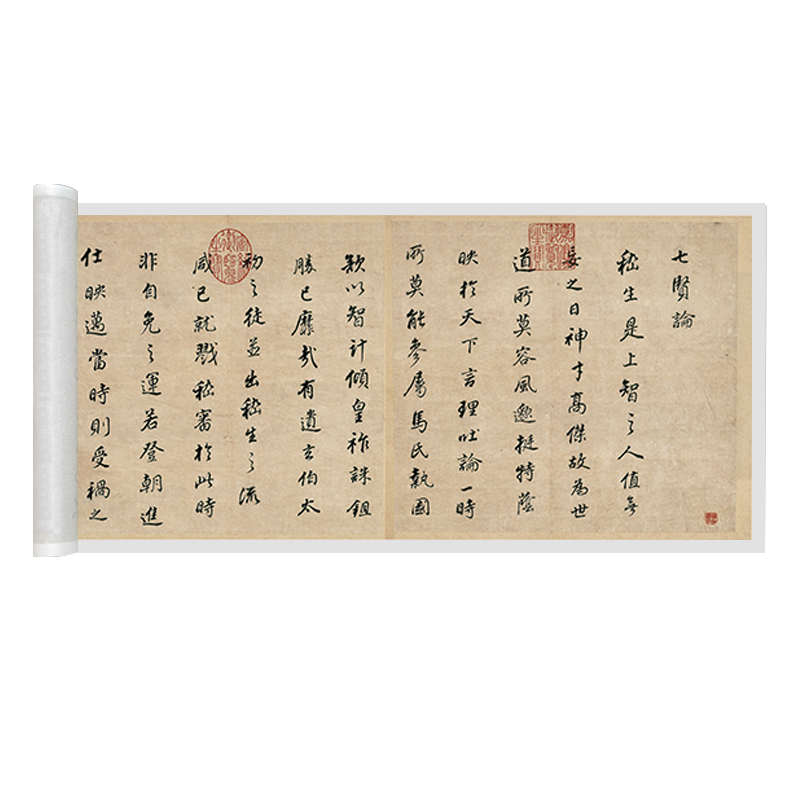 七賢論
嵇生是上智之人值無
妄之日神才高傑故為世
道所莫容風邈挺特蔭
映於天下言理吐論一時
所莫能參屬馬氏執國
欲以智計傾皇祚誅鉏
勝己靡哉有遺玄伯太
初之徒並出嵇生之流
咸已就戮嵇審於此時
非自免之運若登朝進
仕映邁當時則受禍之